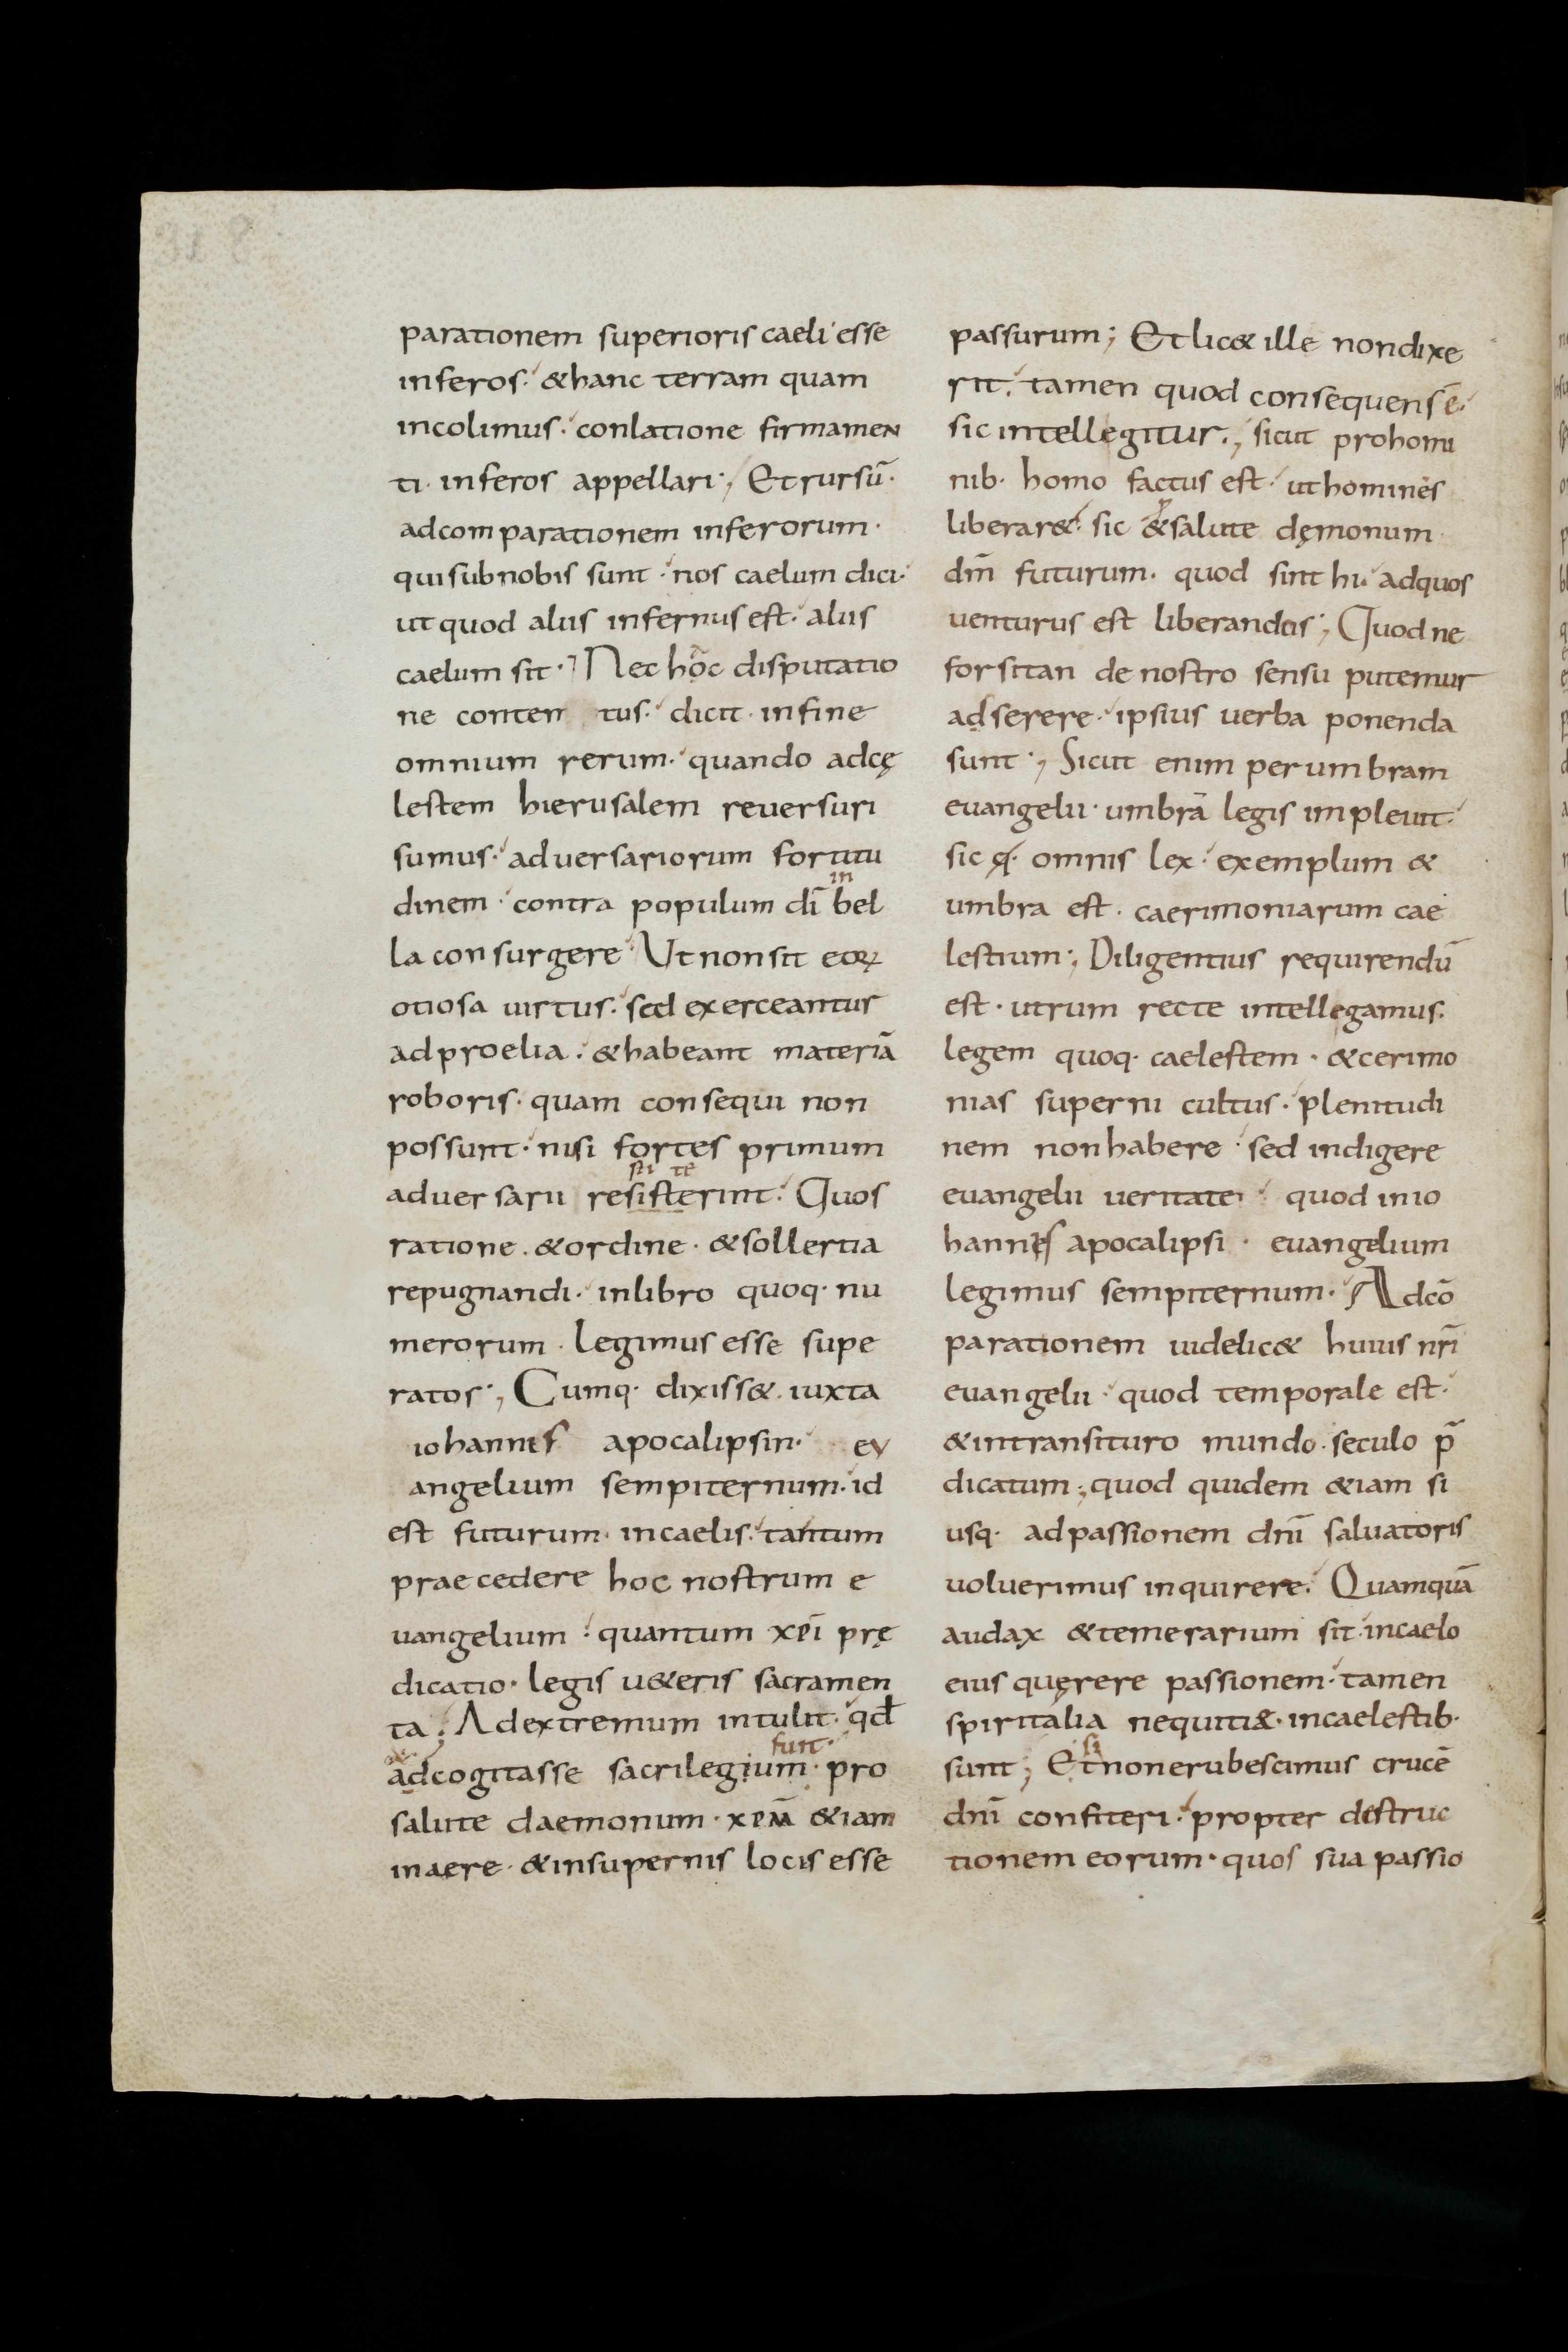 parationem superioris caeli esse
inferos. &hanc terram quam
incolimus. conlatione firmamen
ti. inferos appellari; Et rursū.
adcomparationem inferorum.
qui sub nobis sunt. nos caelum dici.
ut quod aliis infernus est. aliis
caelum sit. Nec hac disputatio
ne conten tus. dicit. infine
omnium rerum. quando adcę
lestem hierusalem reuersuri
sumus. aduersariorum fortitu
in
dinem. contra populum dī bel
la consurgere. Ut non sit eoꝝ
otiosa uirtus. sed exerceantur
adproelia. &habeant materiā
roboris. quam consequi non
possunt. nisi fortes primum
sti te
aduersarii resisterint. Quos
ratione. &ordine. &sollertia
repugnandi. inlibro quoq. nu
merorum. legimus esse supe
ratos; Cumq. dixiss&. iuxta
iohannis apocalipsin. eu
angelium sempiternum. id
est futurum. incaelis. tantum
praecedere hoc nostrum e
uangelium. quantum xp̄i prę
dicatio. legis u&eris sacramen
ta; Ad extremum intulit. qd̄
fuit.
adcogitasse sacrilegium. pro
salute daemonum. xp̄m &iam
inaere. &insupernis locis esse
passurum; Et lic& ille non dixe
rit. tamen quod consequens ē.
sic intellegitur; sicut prohomi
nib. homo factus est. ut homines
liberar&. sic & salute dęmonum
dm̄ futurum. quod sint hi. adquos
uenturus est liberandos; Quod ne
forsitan de nostro sensu putemur
adserere. ipsius uerba ponenda
sunt; Sicut enim per umbram
euangelii. umbrā legis impleuit.
sic q. omnis lex. exemplum &
umbra est. caerimoniarum cae
lestium; Diligentius requirendū
est. utrum recte intellegamus.
legem quoq. caelestem. &cerimo
nias superni cultus. plenitudi
nem non habere. sed indigere
euangelii ueritate. quod in io
hannis apocalipsi. euangelium
legimus sempiternum. Ad cō
parationem uidelic& huius nr̄i
euangelii. quod temporale est.
&intransituro mundo. seculo p̄
dicatum; quod quidem &iam si
usq. adpassionem dnī saluatoris
uoluerimus inquirere. Quamquā
audax &temerarium sit. incaelo
eius quęrere passionem. tamen
spiritalia nequitiæ. incaelestib.
si
sunt; Et non erubescimus crucē
dnī confiteri. propter destruc
tionem eorum. quos sua passio